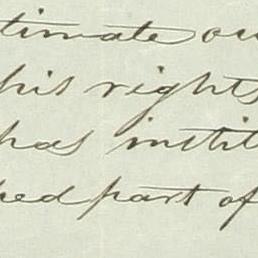 timate ou
his rights
has instit
hed part of